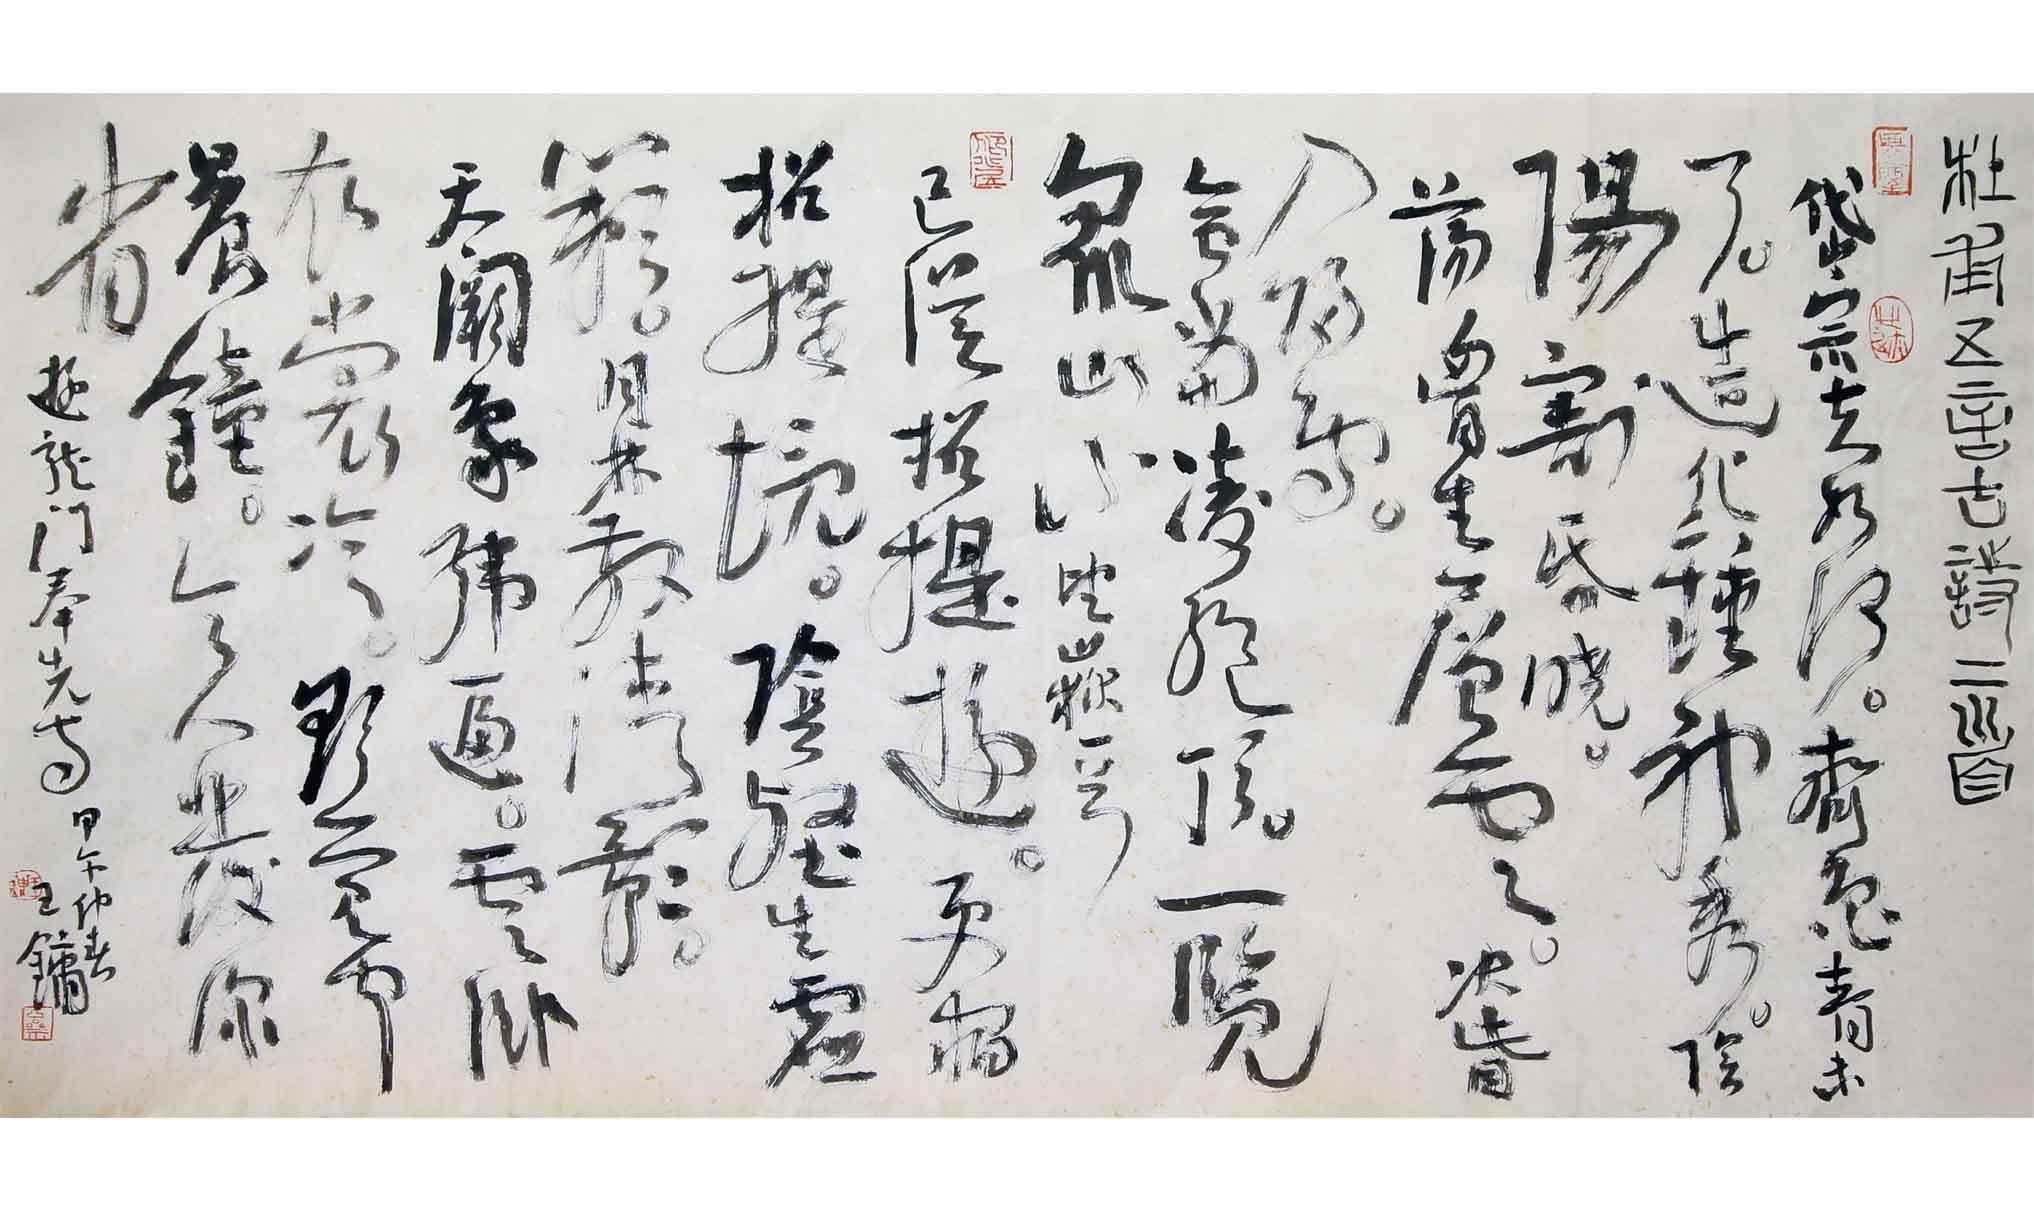 杜甫五言古詩二首
岱宗夫如何。齊魯青未
了。造化鍾神秀。陰
陽割昏曉。
蕩胷生層雲。決眥
入歸鳥。
會當凌絕頂。一覽
衆山小 望嶽一首
已從招提遊。更宿
招提境。陰壑生虛
籟。月林散清影。
天闕象緯逼。雲臥
衣裳冷。欲覺聞
晨鐘。令人發深
省 遊龍門奉先寺
甲午仲春
王鏞